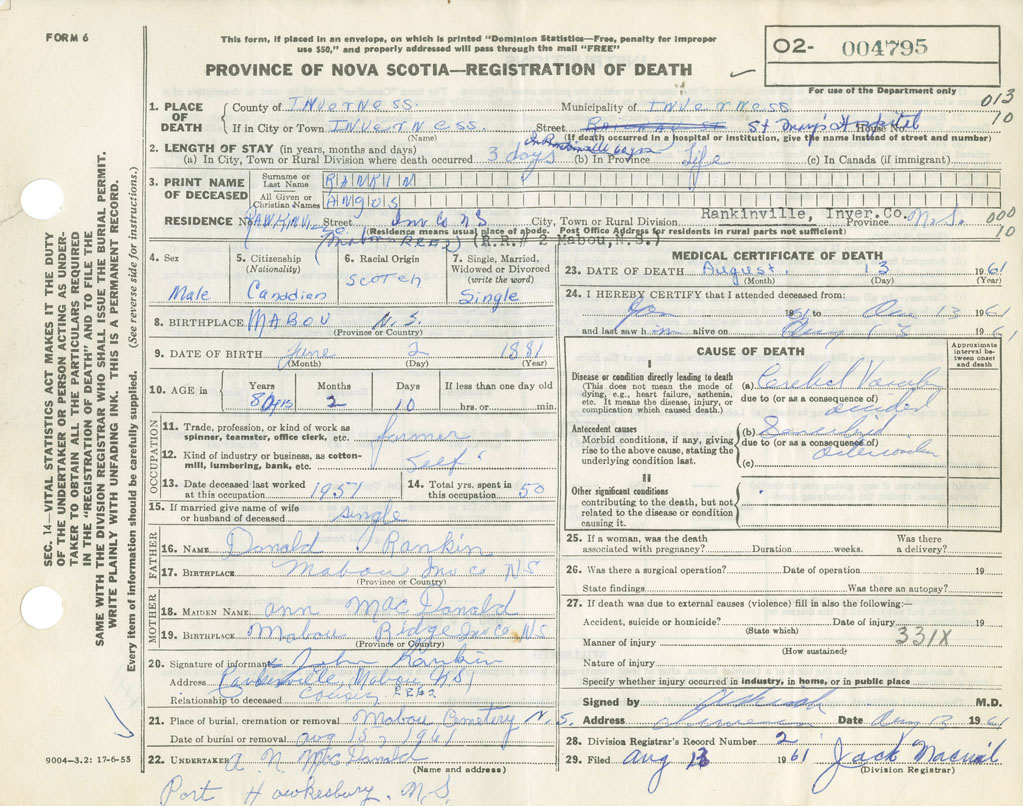 FORM 6
This form, if placed in an envelope, on which is printed "Dominion Statistics—Free, penalty for improper
use $50," and properly addressed will pass through the mail "FREE"
O2- 004795
PROVINCE OF NOVA SCOTIA—REGISTRATION OF DEATH
For use of the Department only
013
10
1. PLACE OF DEATH
County of INVERNESS. Municipality of INVERNESS.
If in City or Town INVERNESS. Street St Mary's Hospital House No.
(Name) (If death occurred in a hospital or institution, give the name instead of street and number)
2. LENGTH OF STAY (in years, months and days)
(a) In City, Town or Rural Division where death occurred 3 days (b) In Province Life (c) In Canada (if immigrant)
3. PRINT NAME OF DECEASED
Surname or Last Name RANKIN
All Given or Christian Names ANGUS
RESIDENCE No. Street Inv Co N S City, Town or Rural Division Rankinville, Inver.Co. Province N.S. 000
10
(Residence means usual place of abode. Post Office Address for residents in rural parts not sufficient)
(R.R.# 2 Mabou,N.S.)
4. Sex
Male
5. Citizenship
(Nationality)
Canadian
6. Racial Origin
Scotch
7. Single, Married,
Widowed or Divorced
(write the word)
Single
8. BIRTHPLACE MABOU N.S.
(Province or Country)
9. DATE OF BIRTH June 2 1881
(Month) (Day) (Year)
10. AGE in
Years Months Days If less than one day old
80 yrs 2 10 hrs. or min.
OCCUPATION
11. Trade, profession, or kind of work as
spinner, teamster, office clerk, etc. farmer
12. Kind of industry or business, as cotton-
mill, lumbering, bank, etc. self
13. Date deceased last worked
at this occupation 1957
14. Total yrs. spent in
this occupation 50
15. If married give name of wife
or husband of deceased single
FATHER
16. NAME Donald J Rankin
17. BIRTHPLACE Mabou Inv co NS
(Province or Country)
MOTHER
18. MAIDEN NAME ann MacDonald
19. BIRTHPLACE Mabou Ridge Inv Co NS
(Province or Country)
20. Signature of informant John Rankin
Address Rankinville, Mabou NS
Relationship to deceased cousin RR#2
21. Place of burial, cremation or removal Mabou Cemetery N.S.
Date of burial or removal aug 15, 1961
22. UNDERTAKER A. N. MacDonald
(Name and address)
Port Hawkesbury. N.S.
9004-3.2: 17-6-55
MEDICAL CERTIFICATE OF DEATH
23. DATE OF DEATH August. 13 1961
(Month) (Day) (Year)
24. I HEREBY CERTIFY that I attended deceased from:
Jan 1951 to Aug 13 1961
and last saw him alive on Aug 13 1961
CAUSE OF DEATH
Approximate interval between onset and death
I
Disease or condition directly leading to death
(This does not mean the mode of
dying, e.g., heart failure, asthenia,
etc. It means the disease, injury, or
complication which caused death.)
(a) Cerebral Vascular
due to (or as a consequence of)
accident
Antecedent causes
Morbid conditions, if any, giving
rise to the above cause, stating the
underlying condition last.
(b)
due to (or as a consequence of)
(c)
II
Other significant conditions
contributing to the death, but not
related to the disease or condition
causing it.
25. If a woman, was the death
associated with pregnancy? Duration weeks. Was there
a delivery?
26. Was there a surgical operation? Date of operation 19
State findings Was there an autopsy?
27. If death was due to external causes (violence) fill in also the following:—
Accident, suicide or homicide? Date of injury 19
(State which)
331X
Manner of injury
(How sustained)
Nature of injury
Specify whether injury occurred in industry, in home, or in public place
Signed by M.D.
Address Inverness Date Aug 13 1961
28. Division Registrar's Record Number 2
29. Filed aug 13 1961 Jack Macneil
(Division Registrar)
SEC. 14—VITAL STATISTICS ACT MAKES IT THE DUTY
OF THE UNDERTAKER OR PERSON ACTING AS UNDER-
TAKER TO OBTAIN ALL THE PARTICULARS REQUIRED
IN THE "REGISTRATION OF DEATH" AND TO FILE THE
SAME WITH THE DIVISION REGISTRAR WHO SHALL ISSUE THE BURIAL PERMIT.
WRITE PLAINLY WITH UNFADING INK. THIS IS A PERMANENT RECORD.
Every item of information should be carefully supplied. (See reverse side for instructions.)